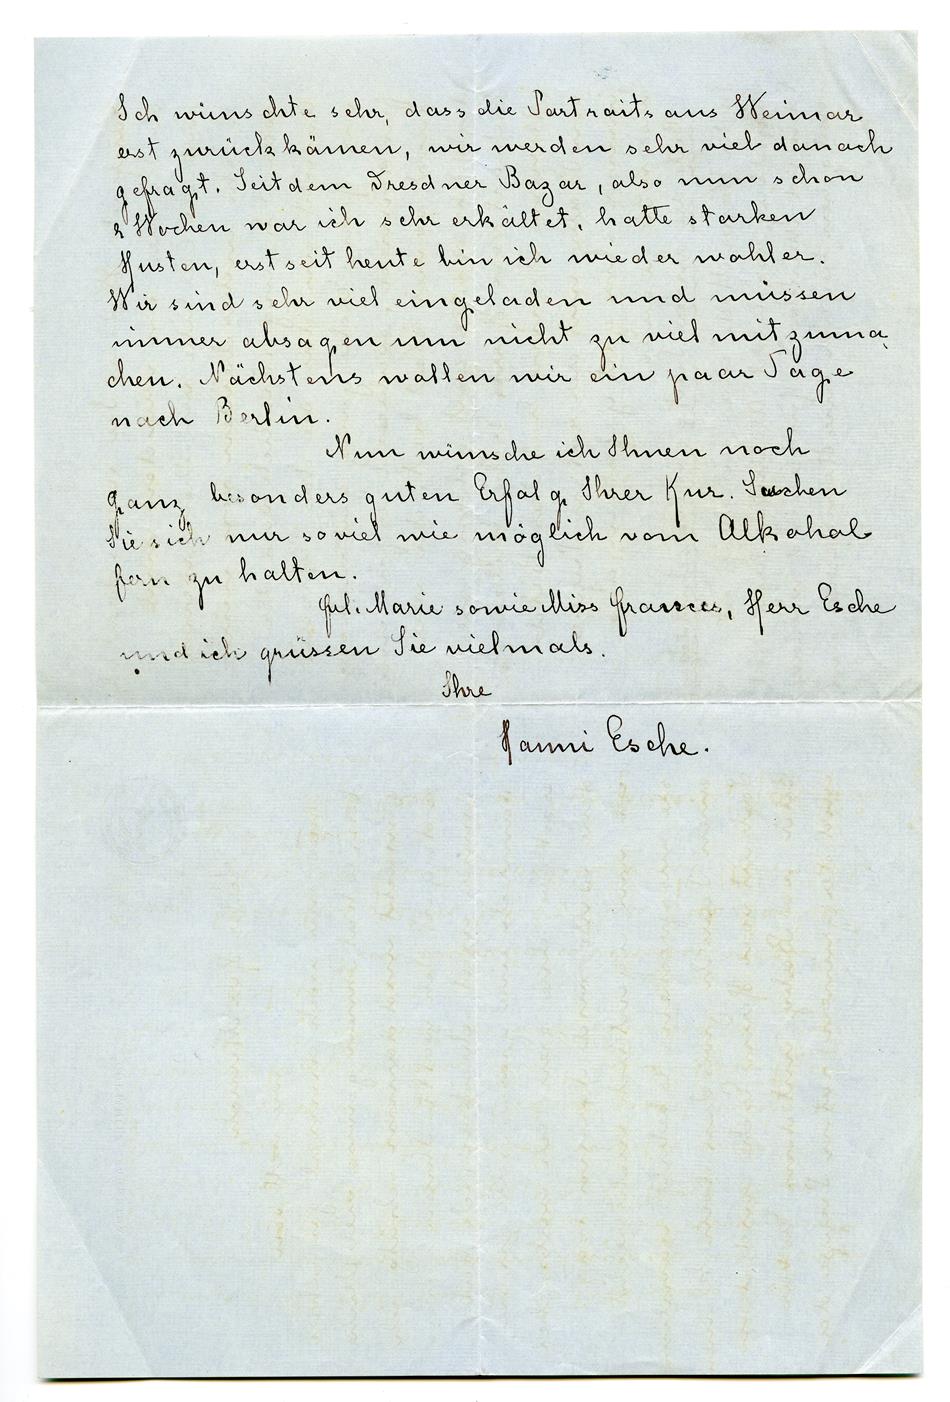 Ich wünschte sehr, dass die Portraits aus Weimar
erst zurückkämen, wir werden sehr viel danach
gefragt. Seit dem Dresdner Bazar, also nun schon
2 Wochen war ich sehr erkältet, hatte starken
Husten, erst seit heute bin ich wieder wohler.
Wir sind sehr viel eingeladen und müssen
immer absagen um nicht zu viel mitzuma-
chen. Nächstens wollen wir ein paar Tage
nach Berlin.
Nun wünsche ich Ihnen noch
ganz besonders guten Erfolg Ihrer Kur. Suchen
Sie sich nur soviel wie möglich vom Alkohol
fern zu halten.
Frl. Marie sowie Miss Frances, Herr Esche
und ich grüssen Sie vielmals.
Ihre
Hanni Esche.